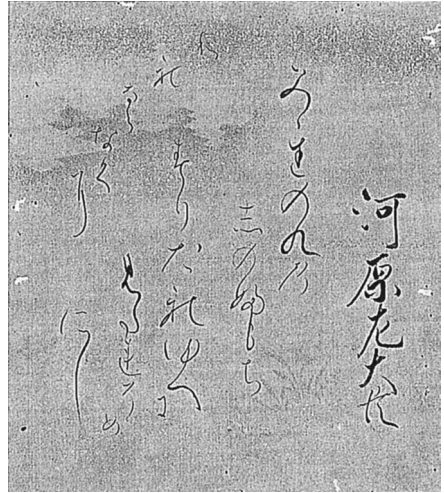 河原左大臣
みちのくの
志のふもち
すりたれゆへに
みたれそめ
にし
わ
れ
なら
なく
に